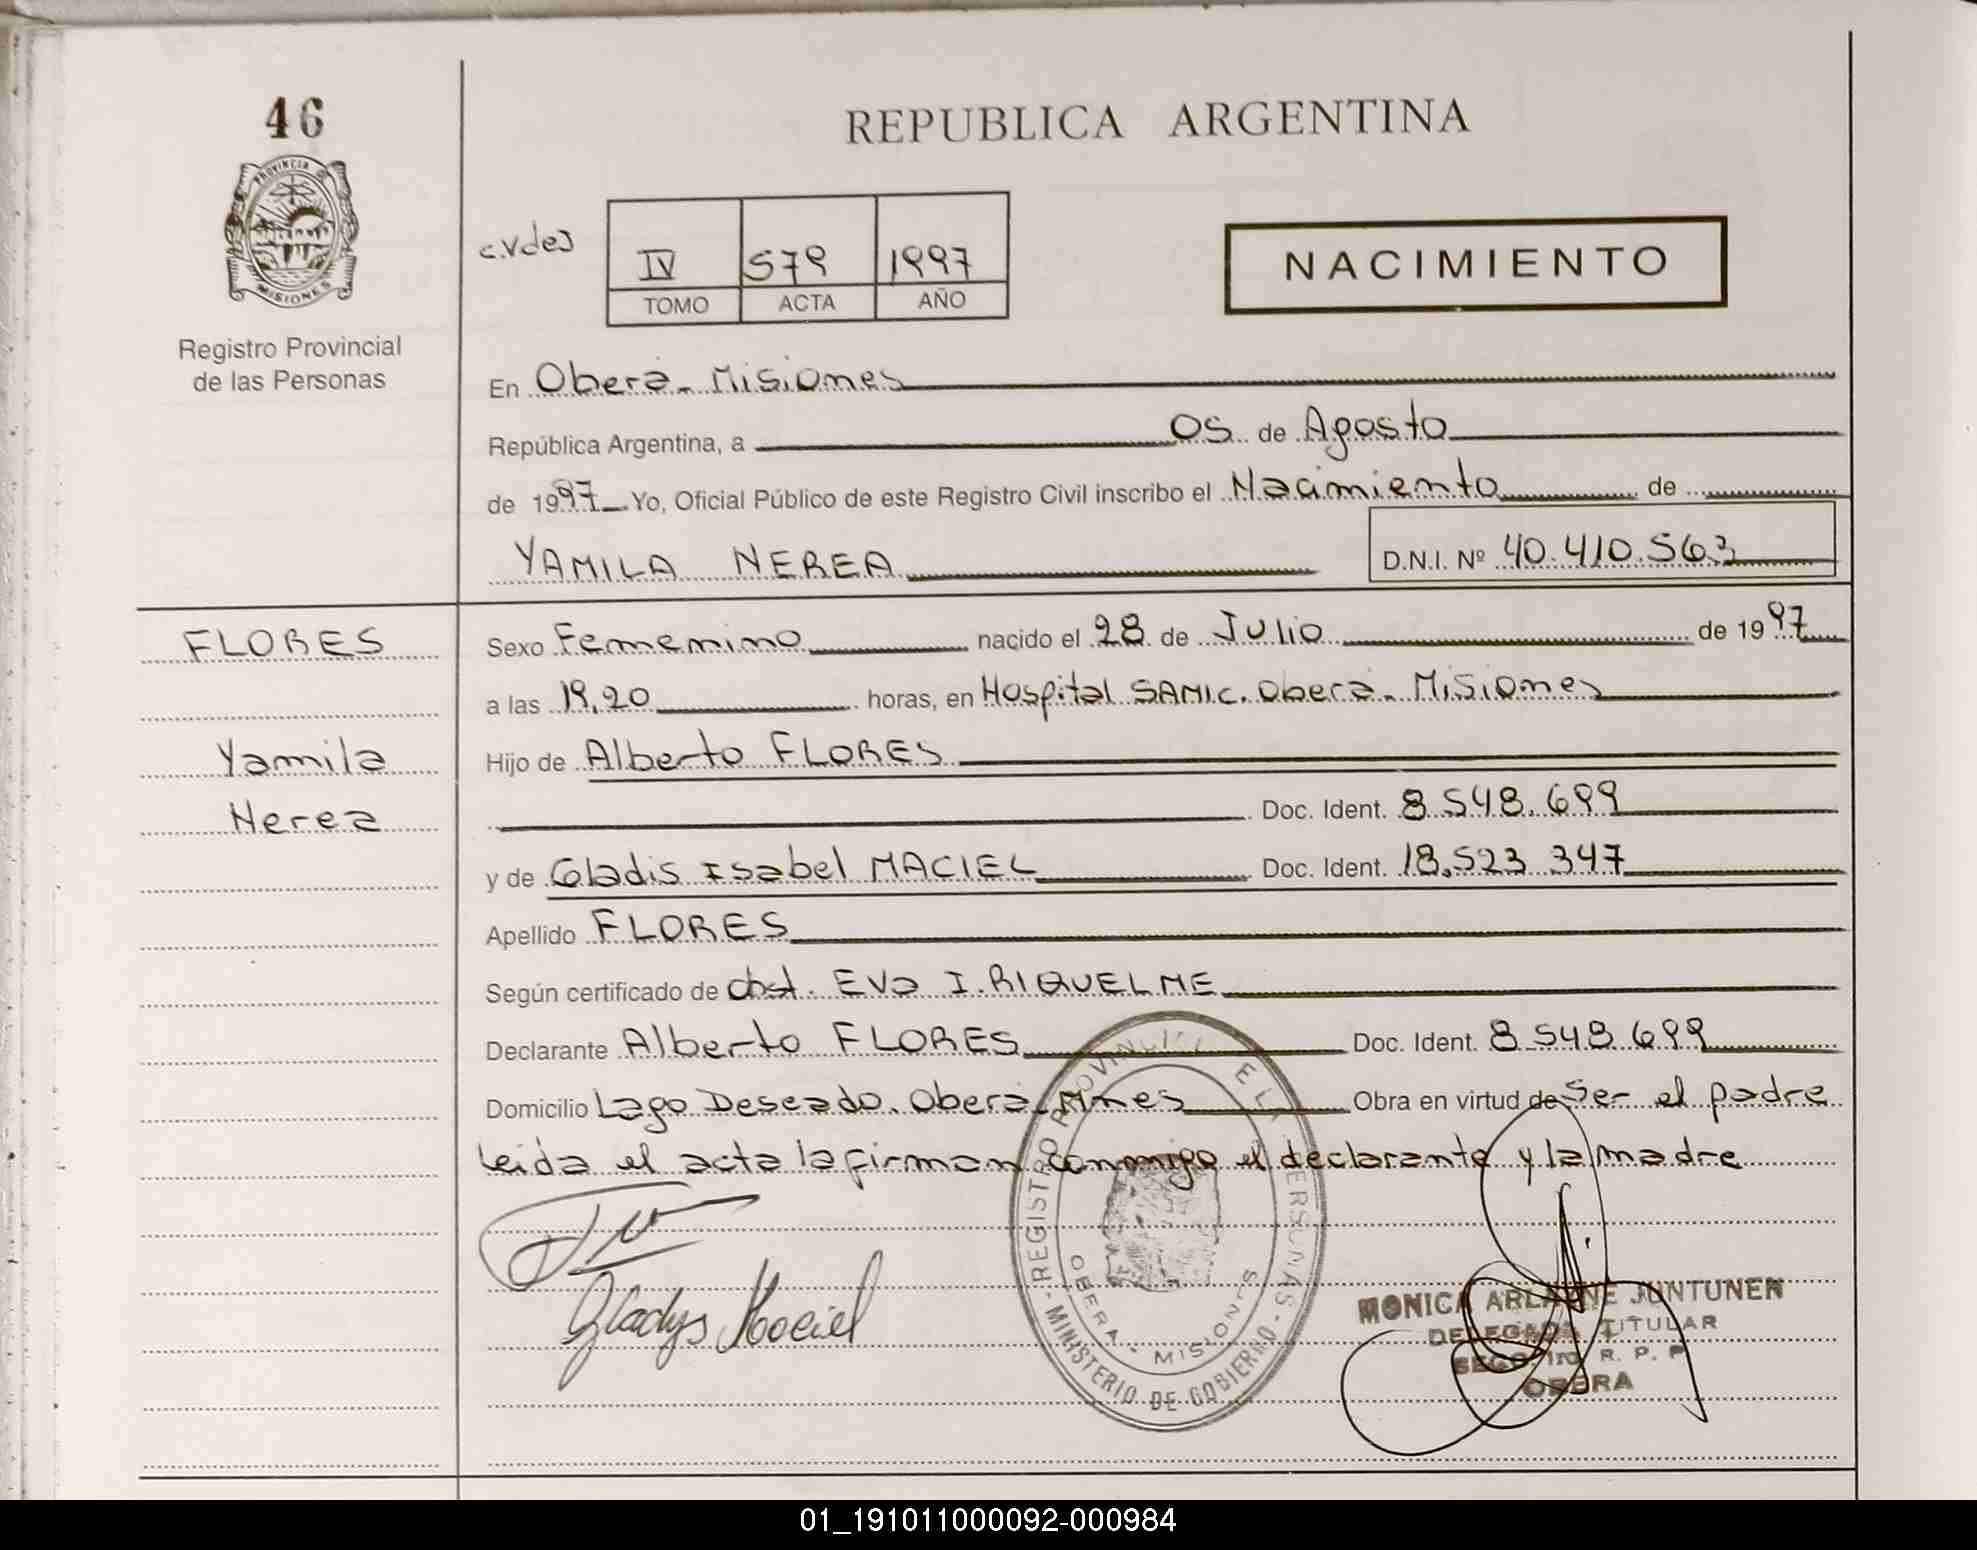 46
REPUBLICA ARGENTINA
PROVINCIA DE
MISIONES
Registro Provincial
de las Personas
IV 579 1997
TOMO ACTA AÑO
NACIMIENTO
En Oberá - Misiones
República Argentina, a 05 de Agosto
de 1997 Yo, Oficial Público de este Registro Civil inscribo el Nacimiento de
YAMILA NEREA D.N.I. Nº 40.410.563
FLORES
Yamila
Nerea
Sexo Femenino nacido el 28 de Julio de 1997
a las 19,20 horas, en Hospital SAMIC. Oberá - Misiones
Hijo de Alberto FLORES
Doc. Ident. 8.548.699
y de Gladis Isabel MACIEL Doc. Ident. 18.523.347
Apellido FLORES
Según certificado de obst. Eva I. RIQUELME
Declarante Alberto FLORES Doc. Ident. 8.548.699
Domicilio Lago Deseado. Oberá - Mnes Obra en virtud de ser el padre
leida el acta la firman conmigo el declarante y la madre
Gladys Maciel
REGISTRO PROVINCIAL DE LAS PERSONAS - MINISTERIO DE GOBIERNO -
OBERA - MISIONES
MONICA ARLAINE JUNTUNEN
DELEGADA TITULAR
R. P. P.
OBERA
01_191011000092-000984